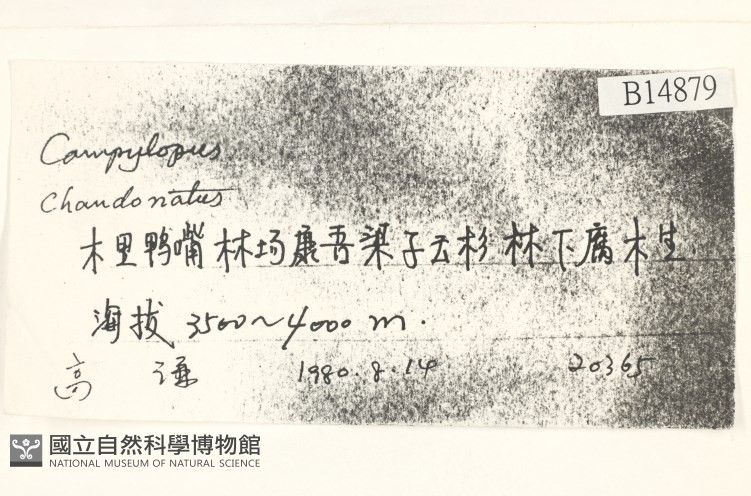 B14879
Campylopus
Chandonatus
木里鸭嘴林场康吾梁子云杉林下腐木生
海拔 3500~4000 m.
高 谦 1980.8.14 20365
國立自然科學博物館
NATIONAL MUSEUM OF NATURAL SCIENCE